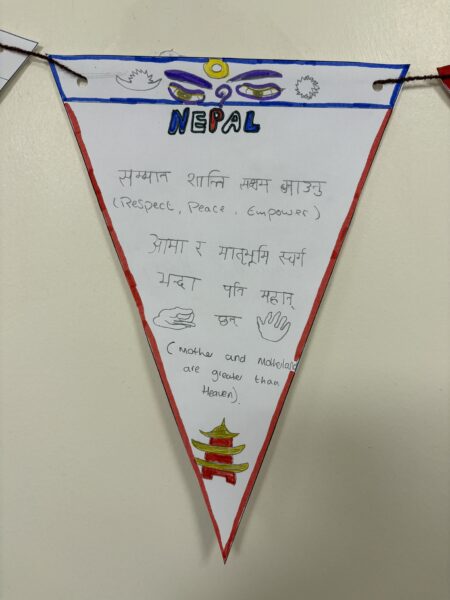 NEPAL
सम्मान शान्ति सक्षम बनाउनु
(Respect, Peace, Empower)
आमा र मातृभूमि स्वर्ग
भन्दा पनि महान्
छन्
(Mother and Motherland
are greater than
Heaven).